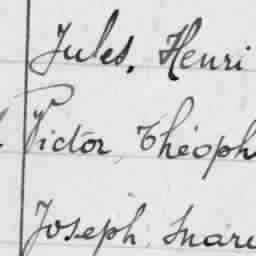 Jules, Henri
Victor, Théoph
Joseph, Mari